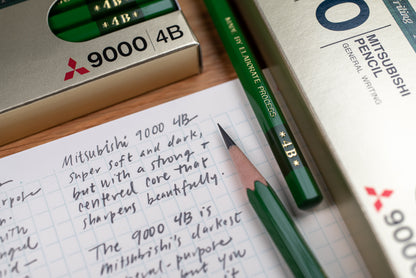 4B
4B
9000 4B
MADE BY ELABORATE PROCESS
★4B★
MITSUBISHI
PENCIL
GENERAL WRITING
9000
Mitsubishi 9000 4B
super soft and dark,
but with a strong +
centered core that
sharpens beautifully.
The 9000 4B is
Mitsubishi's darkest
purpose
but you